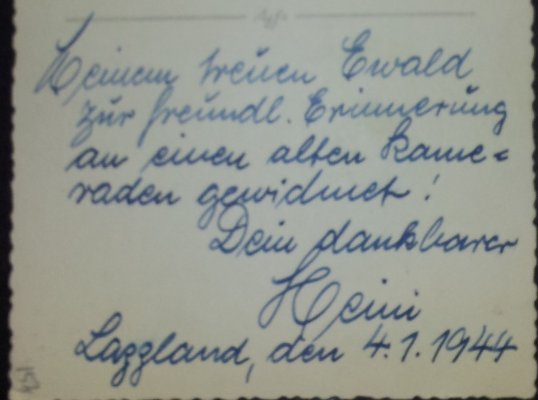 Meinem treuen Ewald
zur freundl. Erinnerung
an einen alten Kame=
raden gewidmet!
Dein dankbarer
Heini
Lazzland, den 4.1.1944